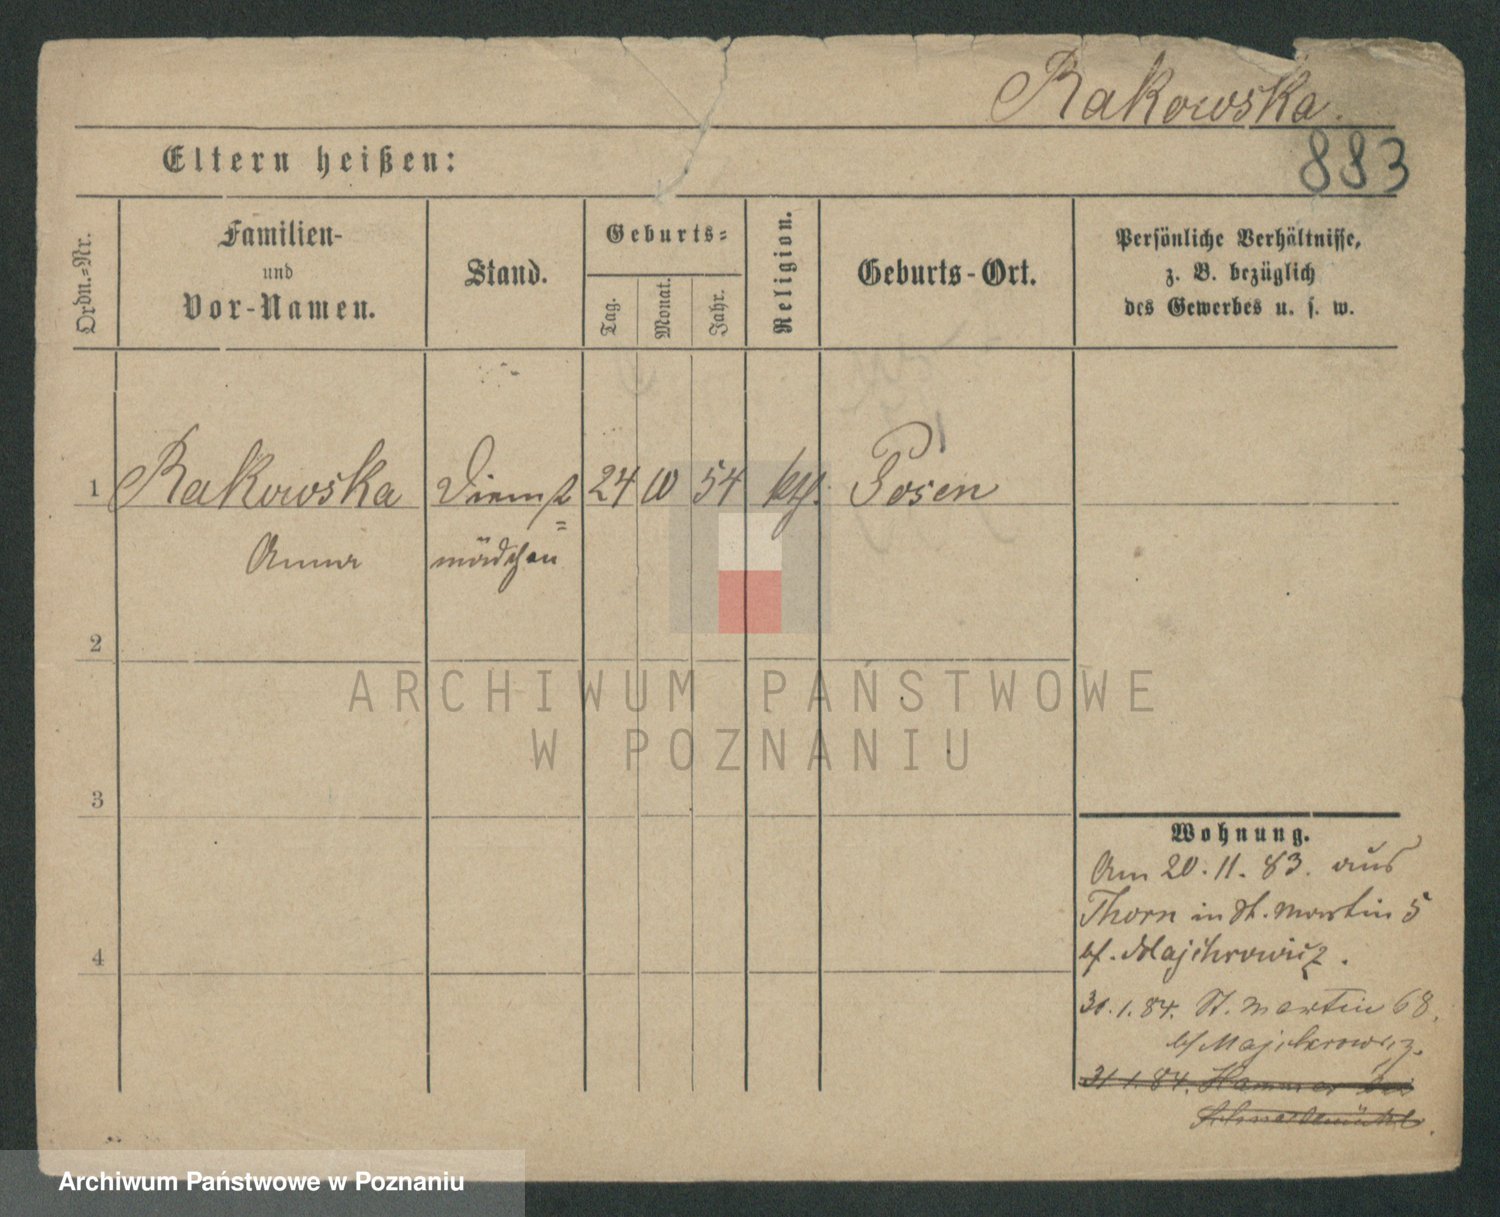 Rakowska.
883
Eltern heißen:
Ordn.=Nr.
Familien-
und
Vor-Namen.
Stand.
Geburts=
Tag.
Monat.
Jahr.
Religion.
Geburts-Ort.
Persönliche Verhältnisse,
z. B. bezüglich
des Gewerbes u. s. w.
1 Rakowska Dienst= 24 10 54 kth. Posen
Anna mädchen
2
3
4
Wohnung.
Am 20.11.83. aus
Thorn in St. Martin 5
b/. Majchrowicz.
31.1.84. St. Martin 68.
b/ Majchrowicz.
31.1.84. Hammer bei
Schneidemühl.
ARCHIWUM PAŃSTWOWE
W POZNANIU
Archiwum Państwowe w Poznaniu